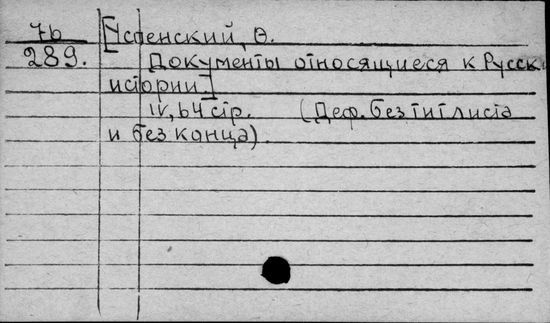 7b
289.
[Успенский, Ѳ.
Документы относящиеся к Русск.
истории.]
IV, 64 стр. (Деф. без тит листа
и без конца).